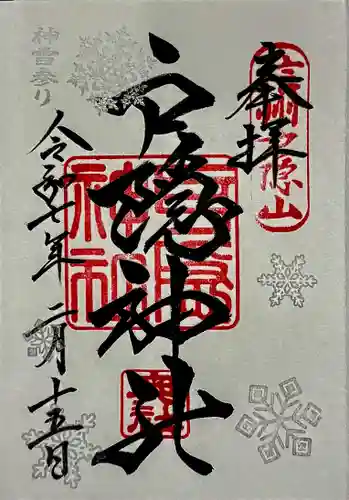 奉拝
戸隠山
戸隠神社
戸隠神社
神雪参り
令和七年二月十五日